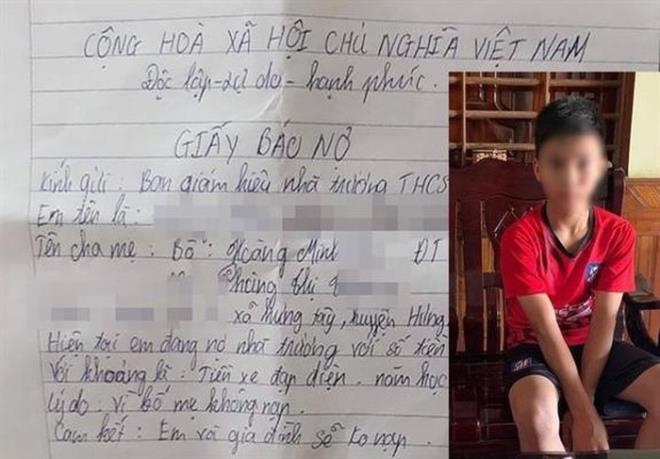 CỘNG HOÀ XÃ HỘI CHỦ NGHĨA VIỆT NAM
Độc lập - tự do - hạnh phúc.
GIẤY BÁO NỢ
Kính gửi: Ban giám hiệu nhà trường THCS
Em tên là:
Tên cha mẹ: Bố: Hoàng Minh ĐT
Phùng thị
xã Hưng tây, huyện Hưng
Hiện tại em đang nợ nhà trường với số tiền
Với khoảng là: Tiền xe đạp điện. năm học
Lý do: vì bố mẹ không nạp.
Cam kết: Em với gia đình sẽ ko nạp.